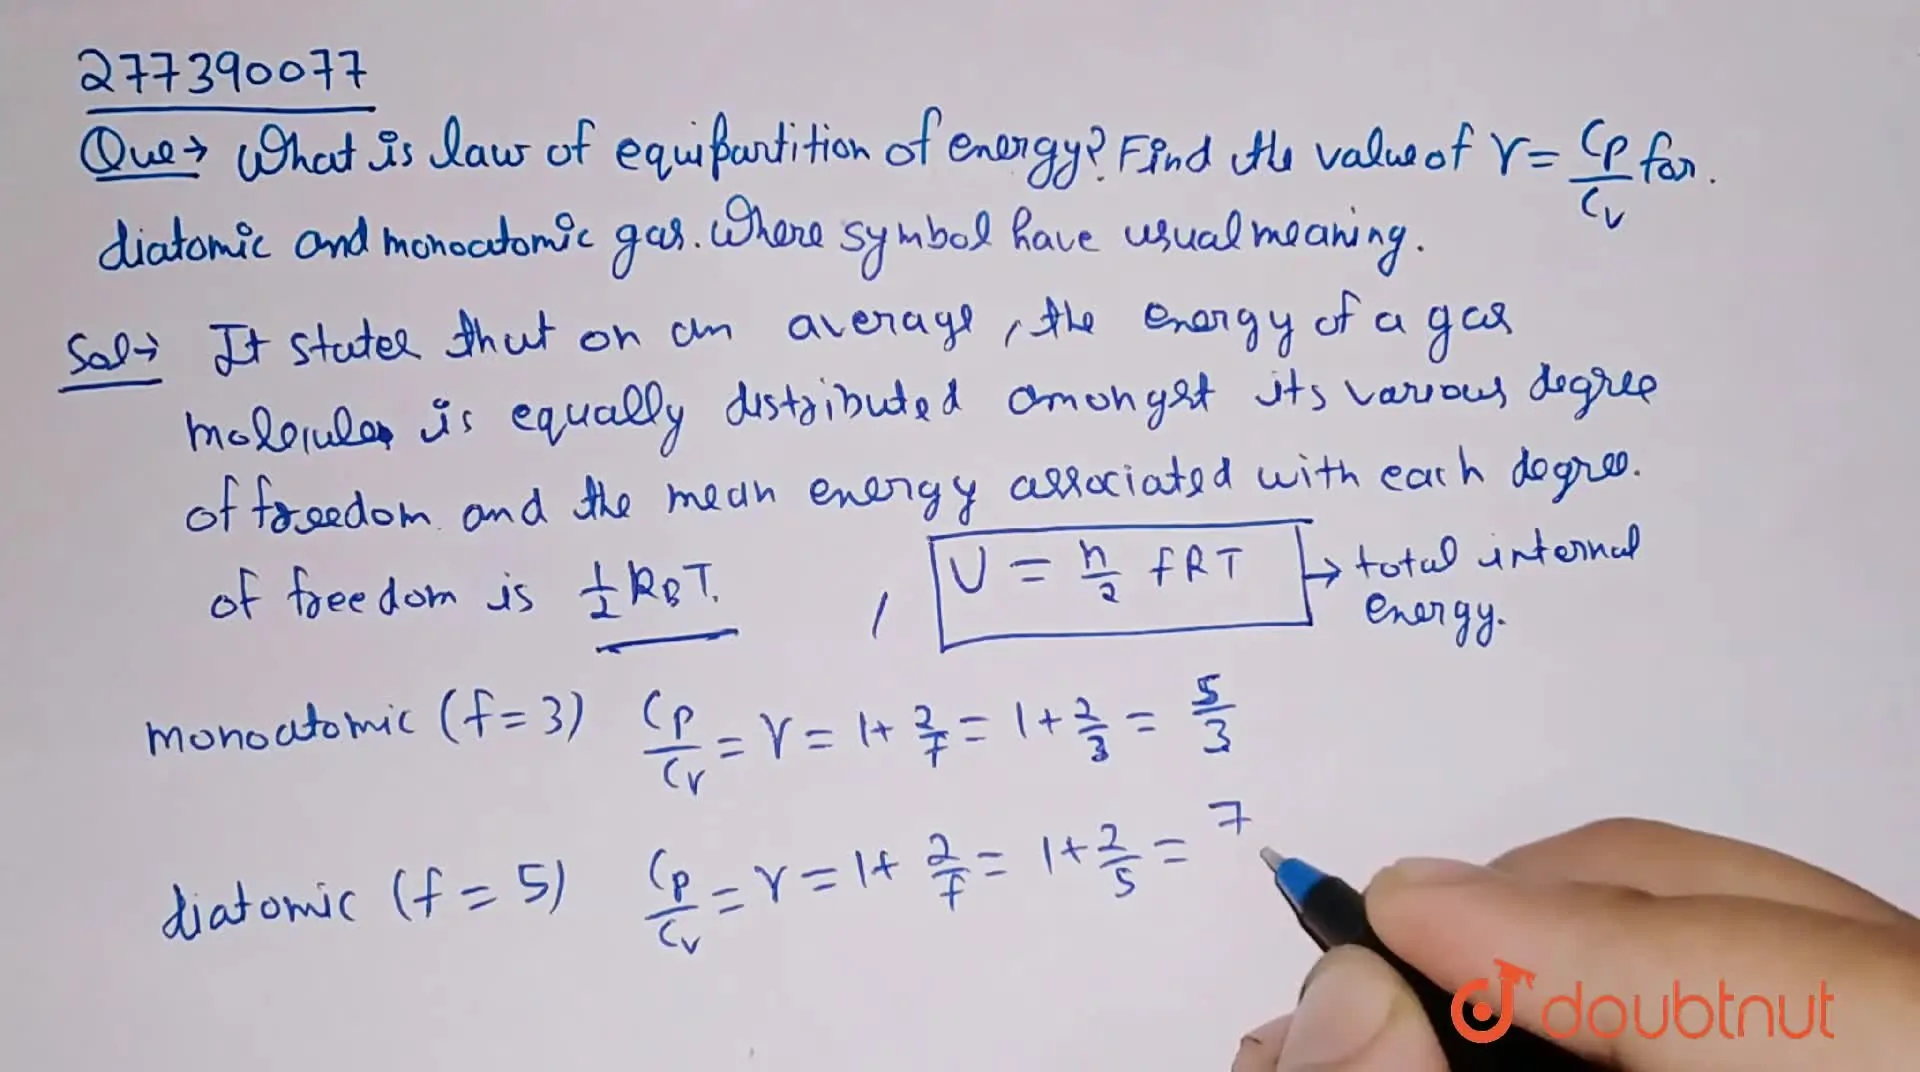 277390077
Que→ What is law of equipartition of energy? Find the value of γ = Cp/Cv for.
diatomic and monoatomic gas. Where symbol have usual meaning.
Sol→ It states that on an average, the energy of a gas
molecule is equally distributed amongst its various degree
of freedom and the mean energy associated with each degree.
of freedom is 1/2 KBT. , U = n/2 fRT → total internal
energy.
monoatomic (f=3) Cp/Cv = γ = 1+ 2/f = 1+2/3 = 5/3
diatomic (f=5) Cp/Cv = γ = 1+ 2/f = 1+2/5 = 7
doubtnut